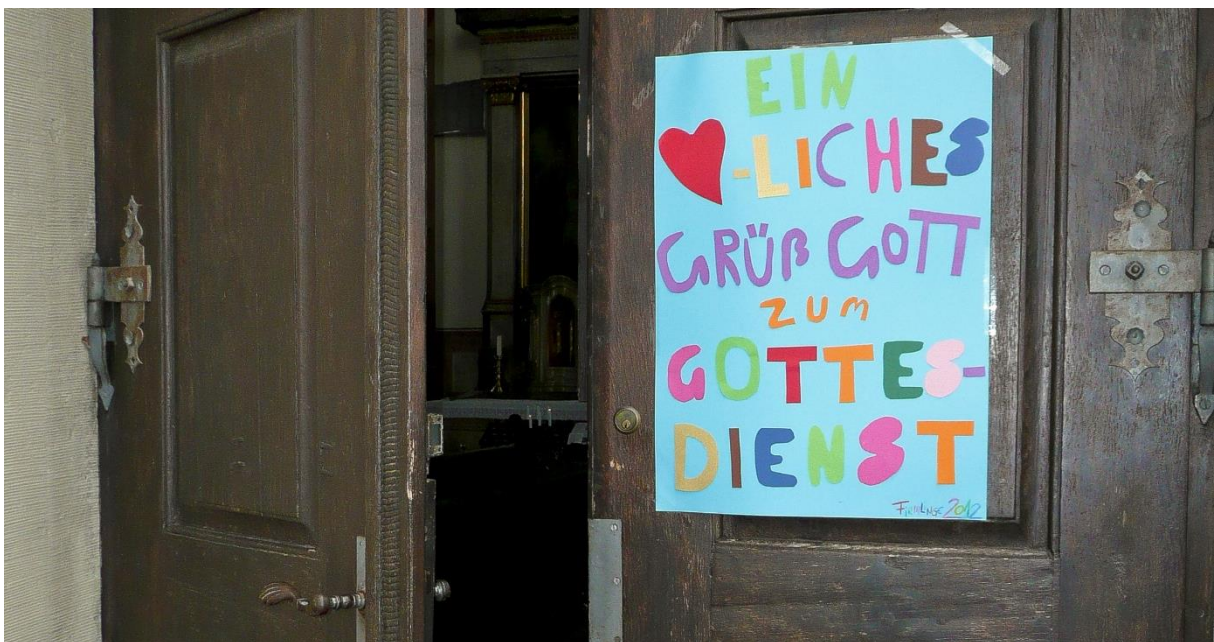 EIN
❤-LICHES
GRÜß GOTT
ZUM
GOTTES-
DIENST
FIRMLINGE 2012